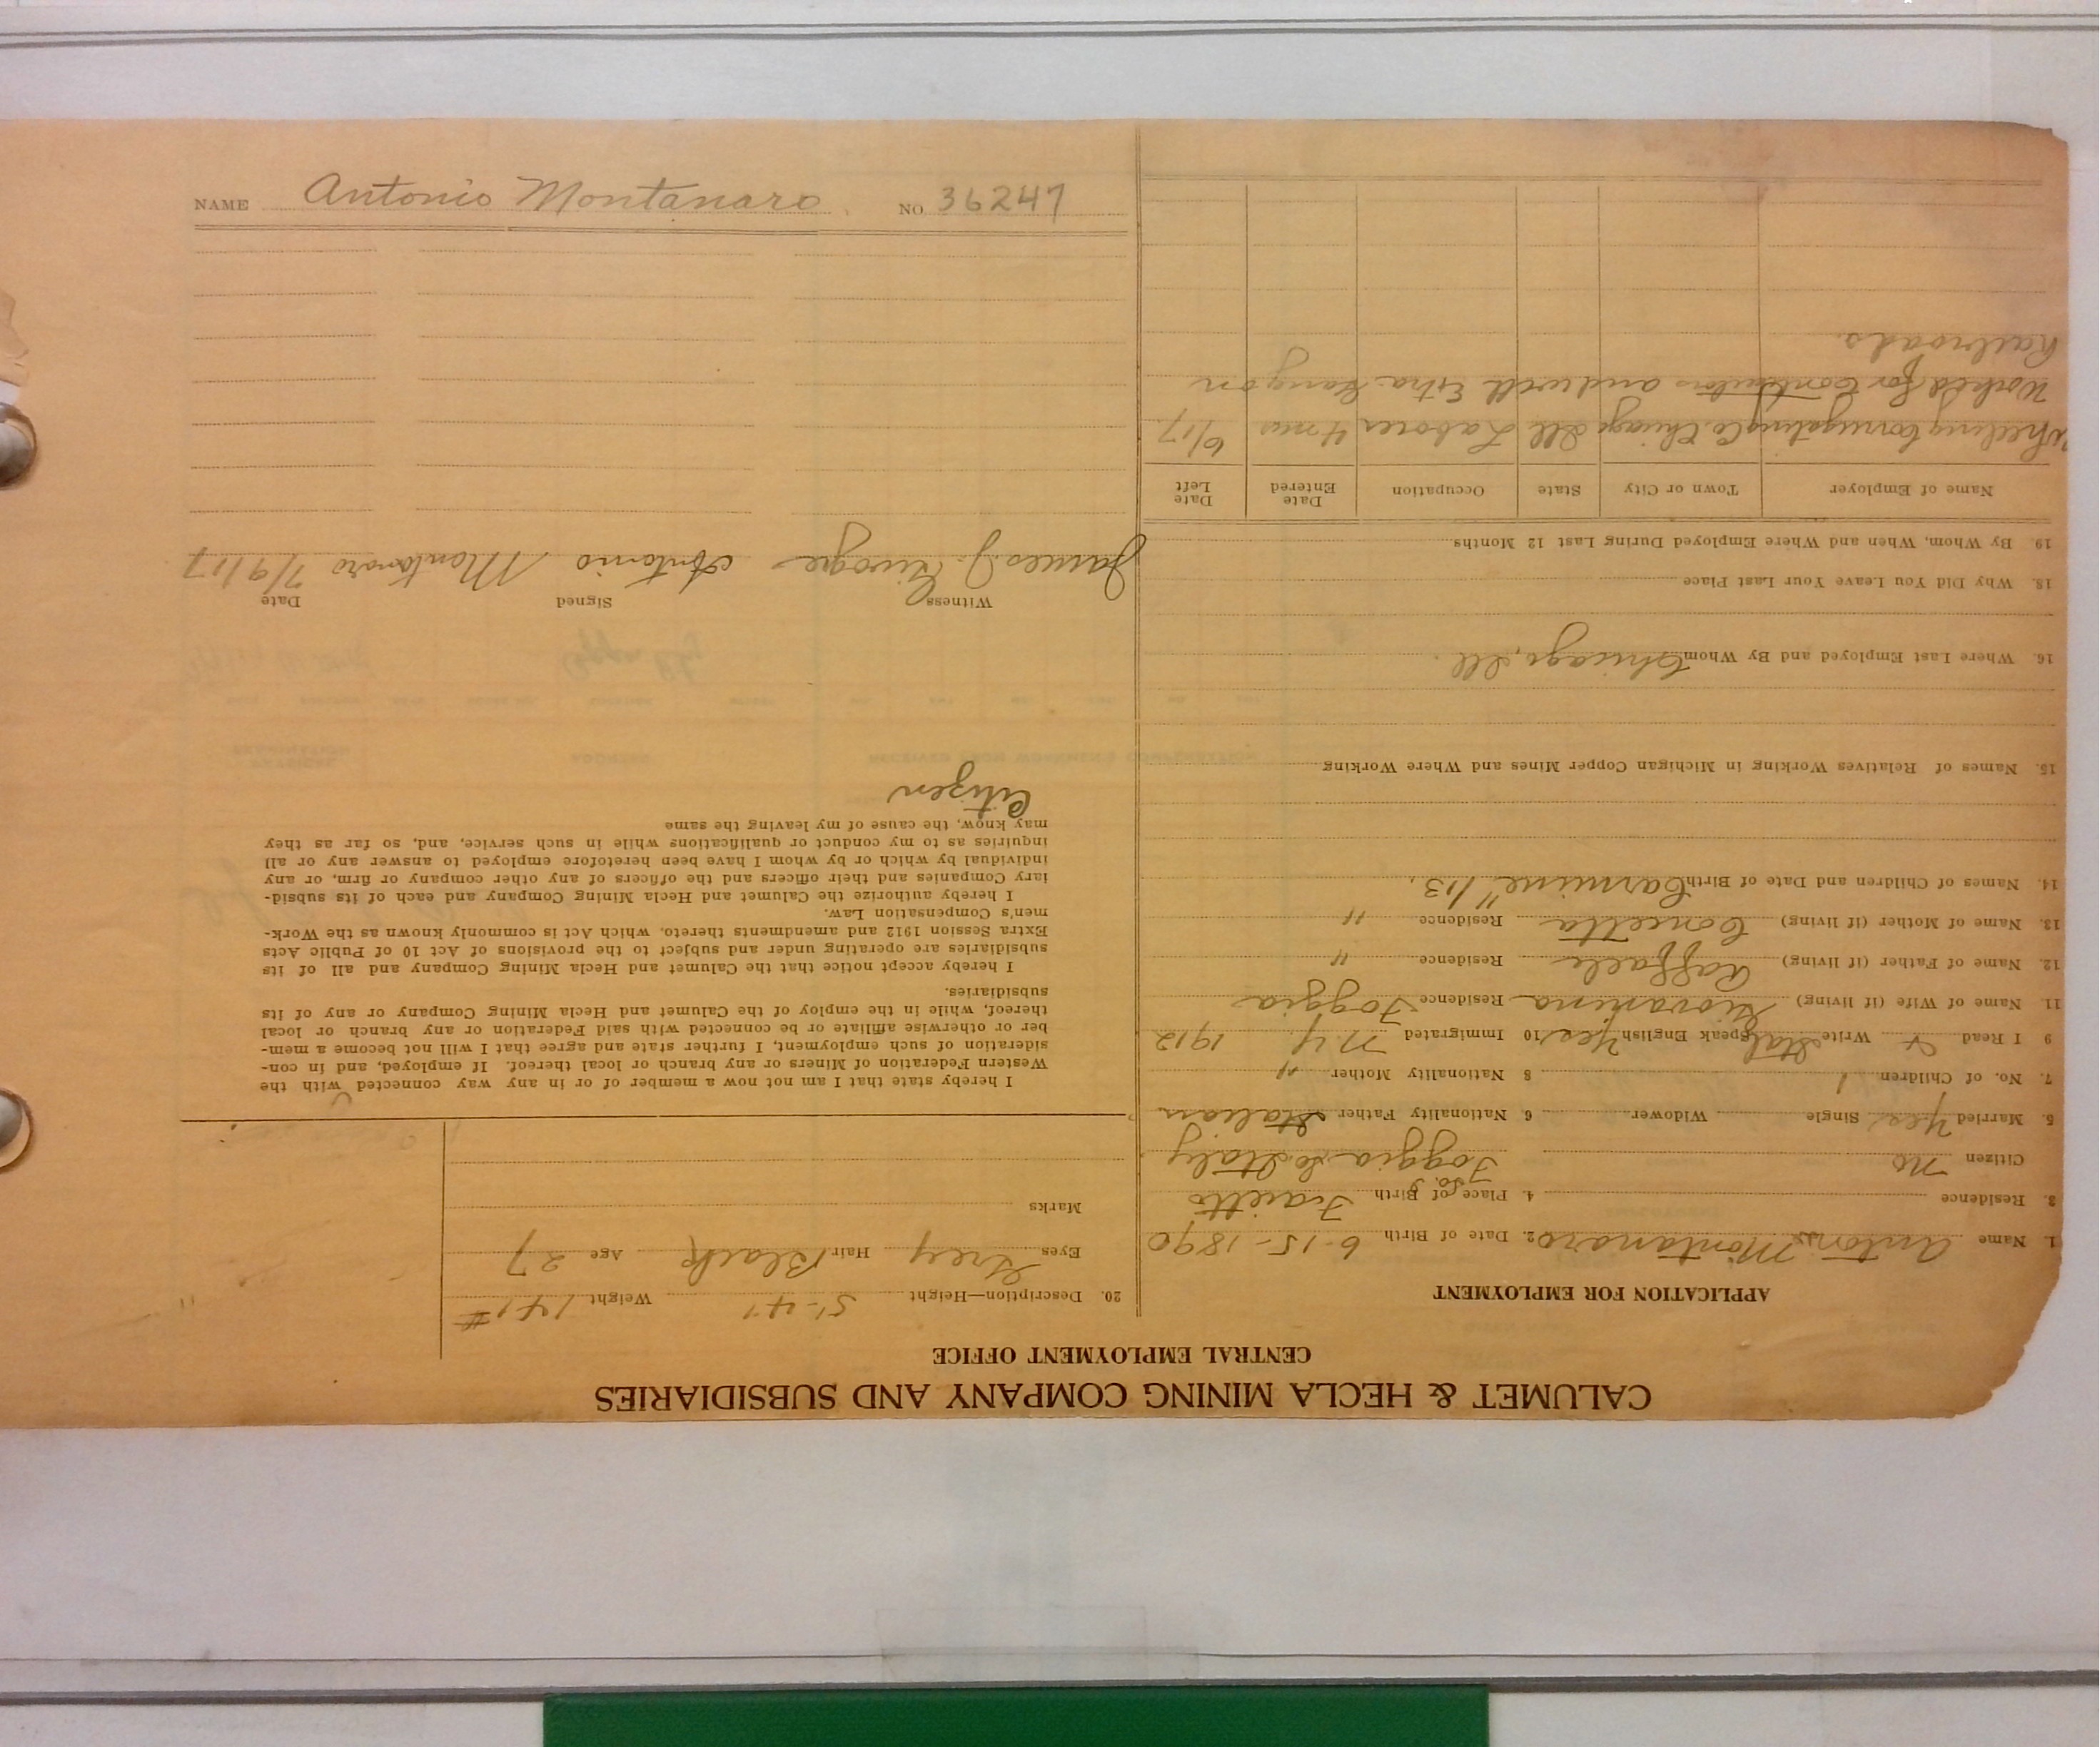 CALUMET & HECLA MINING COMPANY AND SUBSIDIARIES
CENTRAL EMPLOYMENT OFFICE
APPLICATION FOR EMPLOYMENT
1. Name Antonio Montanaro 2. Date of Birth 6-15-1890
3. Residence 4. Place of Birth
Citizen no Foggia So. Italy
5. Married Yes Single Widower 6 Nationality Father Italian
7. No. of Children 1 8 Nationality Mother "
9 I Read & Write Ital Speak English Yes 10 Immigrated N.Y. 1912
11. Name of Wife (if living) Giovanina Residence Foggia
12. Name of Father (if living) Raffaele Residence "
13. Name of Mother (if living) Concetta Residence "
14. Names of Children and Date of Birth Carmine "/13.
15. Names of Relatives Working in Michigan Copper Mines and Where Working
16. Where Last Employed and By Whom Chicago, Ill.
18. Why Did You Leave Your Last Place
19 By Whom, When and Where Employed During Last 12 Months
Name of Employer Town or City State Occupation Date Entered Date Left
Wheeling Corrugating Co. Chicago Ill Laborer 4 mos 6/17
Worked for Contractors and with Extra Gang on
Railroads.
20. Description—Height 5'-4" Weight 141 #
Eyes Grey Hair Black Age 27
Marks
I hereby state that I am not now a member of or in any way connected with the
Western Federation of Miners or any branch or local thereof. If employed, and in con-
sideration of such employment, I further state and agree that I will not become a mem-
ber or otherwise affiliate or be connected with said Federation or any branch or local
thereof, while in the employ of the Calumet and Hecla Mining Company or any of its
subsidiaries.
I hereby accept notice that the Calumet and Hecla Mining Company and all of its
subsidiaries are operating under and subject to the provisions of Act 10 of Public Acts
Extra Session 1912 and amendments thereto, which Act is commonly known as the Work-
men's Compensation Law.
I hereby authorize the Calumet and Hecla Mining Company and each of its subsid-
iary Companies and their officers and the officers of any other company or firm, or any
individual by which or by whom I have been heretofore employed to answer any or all
inquiries as to my conduct or qualifications while in such service, and, so far as they
may know, the cause of my leaving the same
Citizen
Witness Signed Date
James J. Antonio Montanaro 7/9/17
NAME Antonio Montanaro NO. 36247